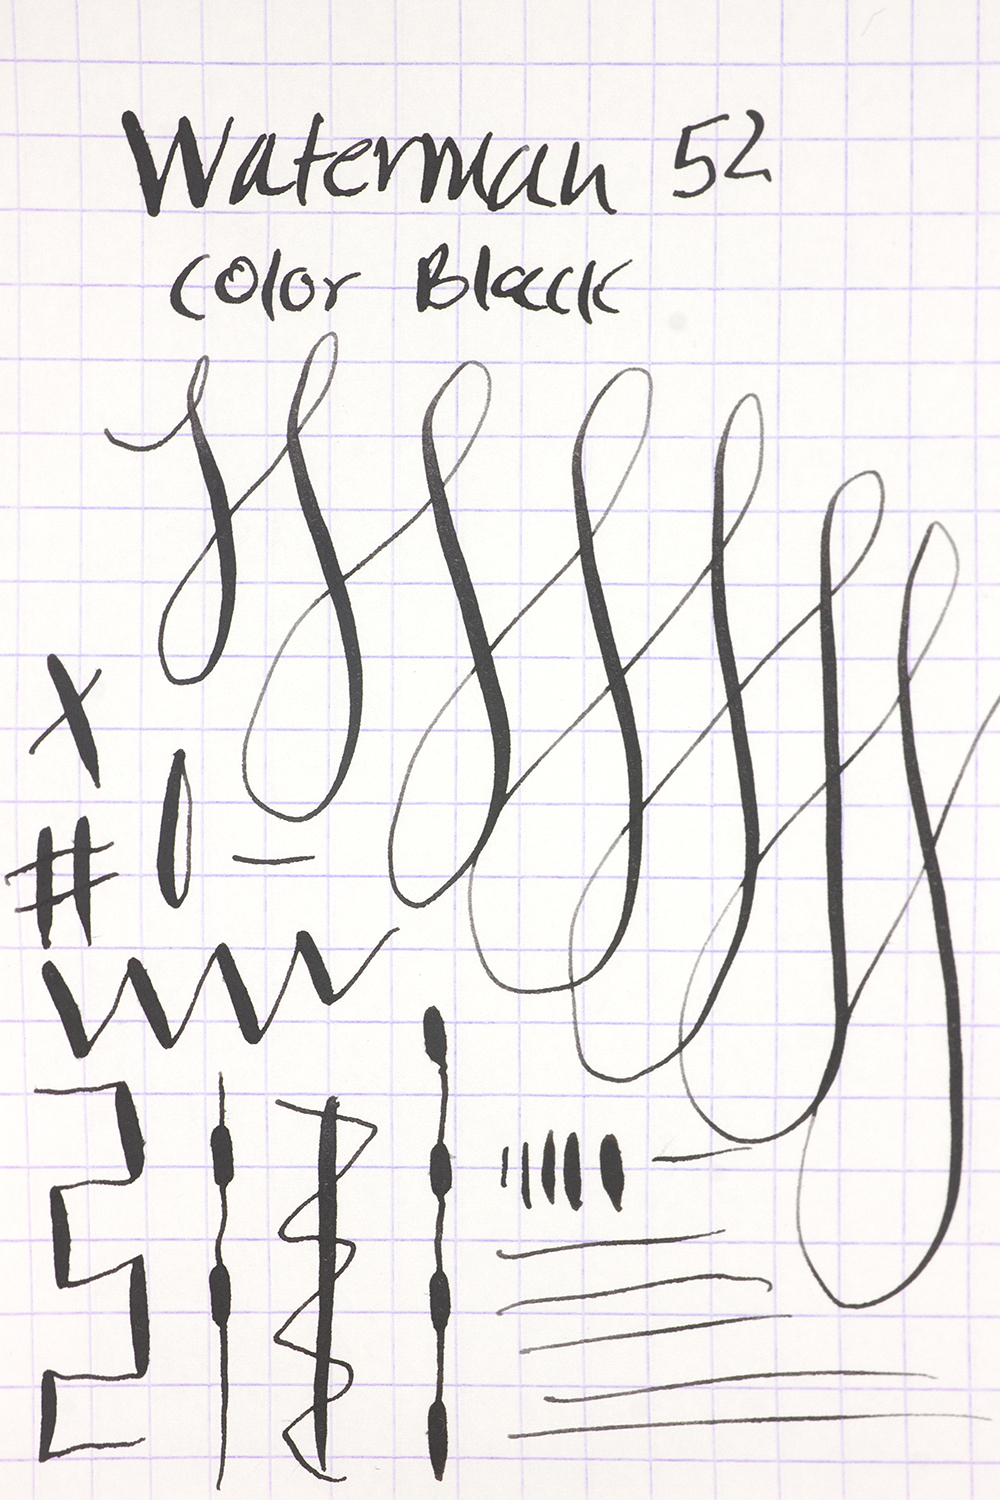 Waterman 52
Color Black